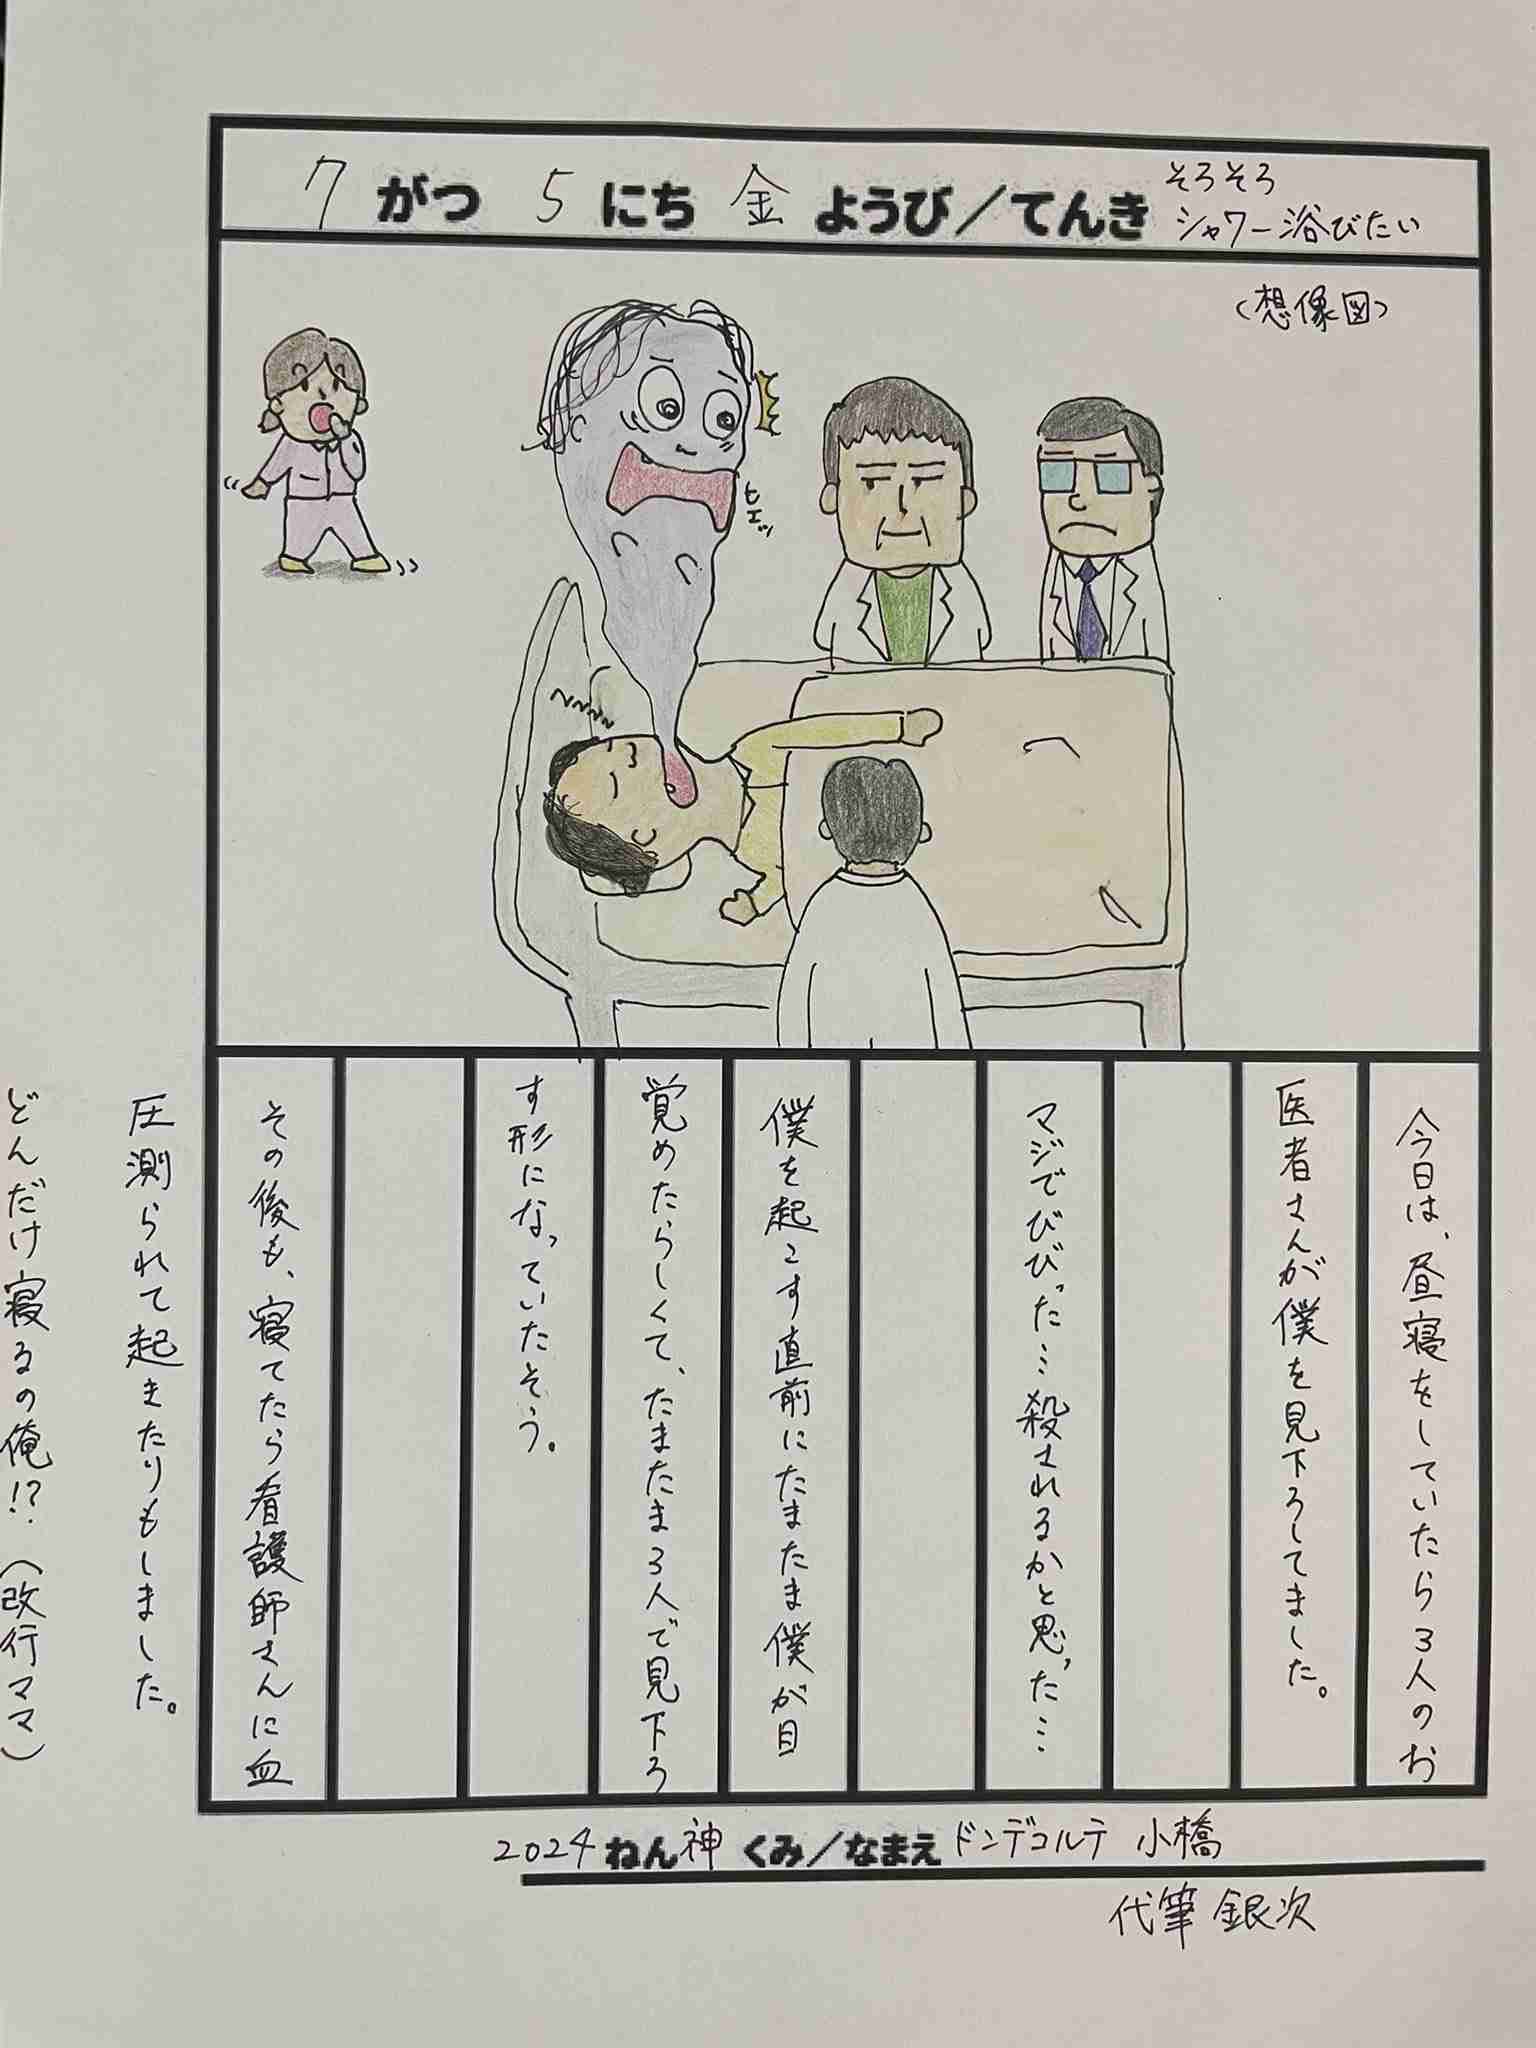 7がつ5にち金ようび／てんき そろそろ
シャワー浴びたい
（想像図）
ヒエッ
今日は、昼寝をしていたら3人のお
医者さんが僕を見下ろしてました。
マジでびびった…殺されるかと思った…
僕を起こす直前にたまたま僕が目
覚めたらしくて、たまたま3人で見下ろ
す形になっていたそう。
その後も、寝てたら看護師さんに血
圧測られて起きたりもしました。
どんだけ寝るの俺！？（改行ママ）
2024ねん神くみ／なまえ ドンデコルテ 小橋
代筆 銀次